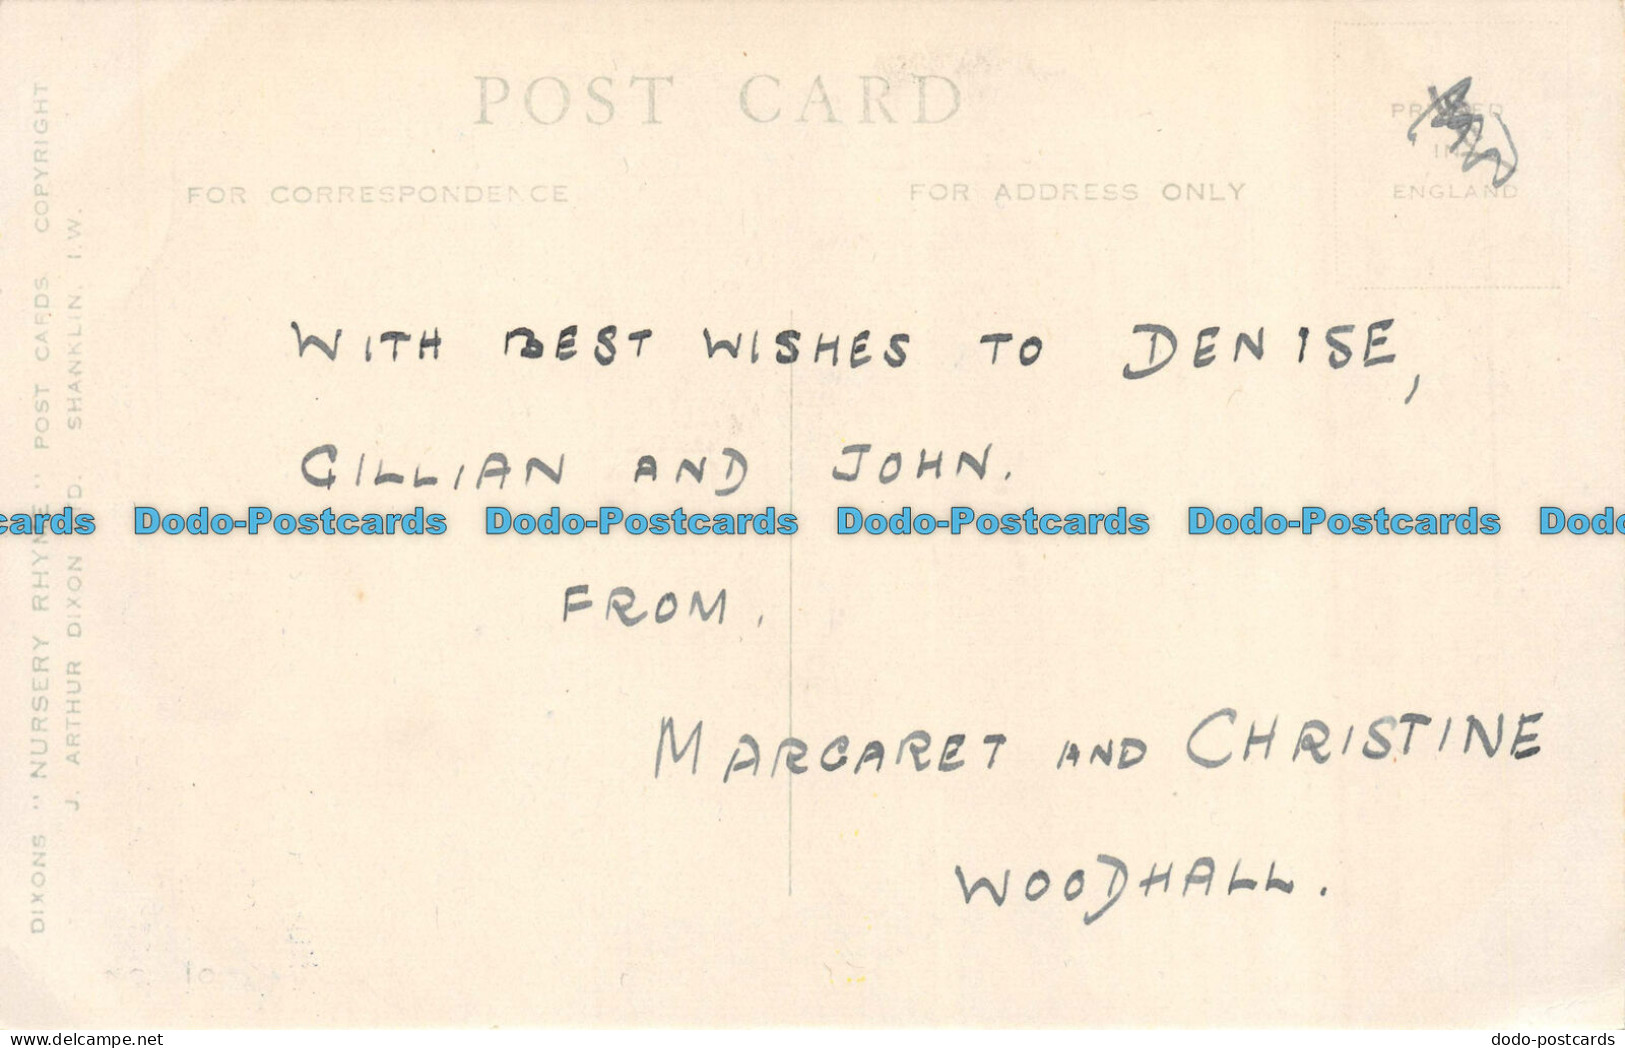 POST CARD
FOR CORRESPONDENCE
FOR ADDRESS ONLY
PRINTED
IN
ENGLAND
DIXONS "NURSERY RHYME" POST CARDS COPYRIGHT
J. ARTHUR DIXON LTD. SHANKLIN. I.W.
WITH BEST WISHES TO DENISE,
GILLIAN AND JOHN.
cards Dodo-Postcards Dodo-Postcards Dodo-Postcards Dodo-Postcards Dodo
FROM.
MARGARET AND CHRISTINE
WOODHALL.
10
delcampe.net
dodo-postcards